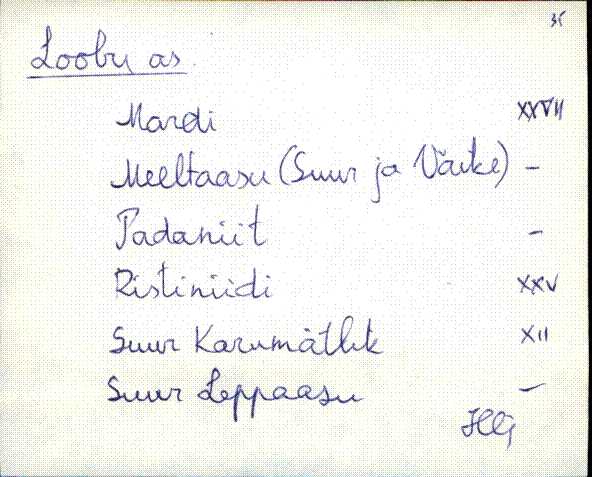 35
Loobu as.
Mardi XXVII
Meeltaasu (Suur ja Väike) –
Padaniit –
Ristiniidi XXV
Suur Karumätlik XII
Suur Leppaasu –